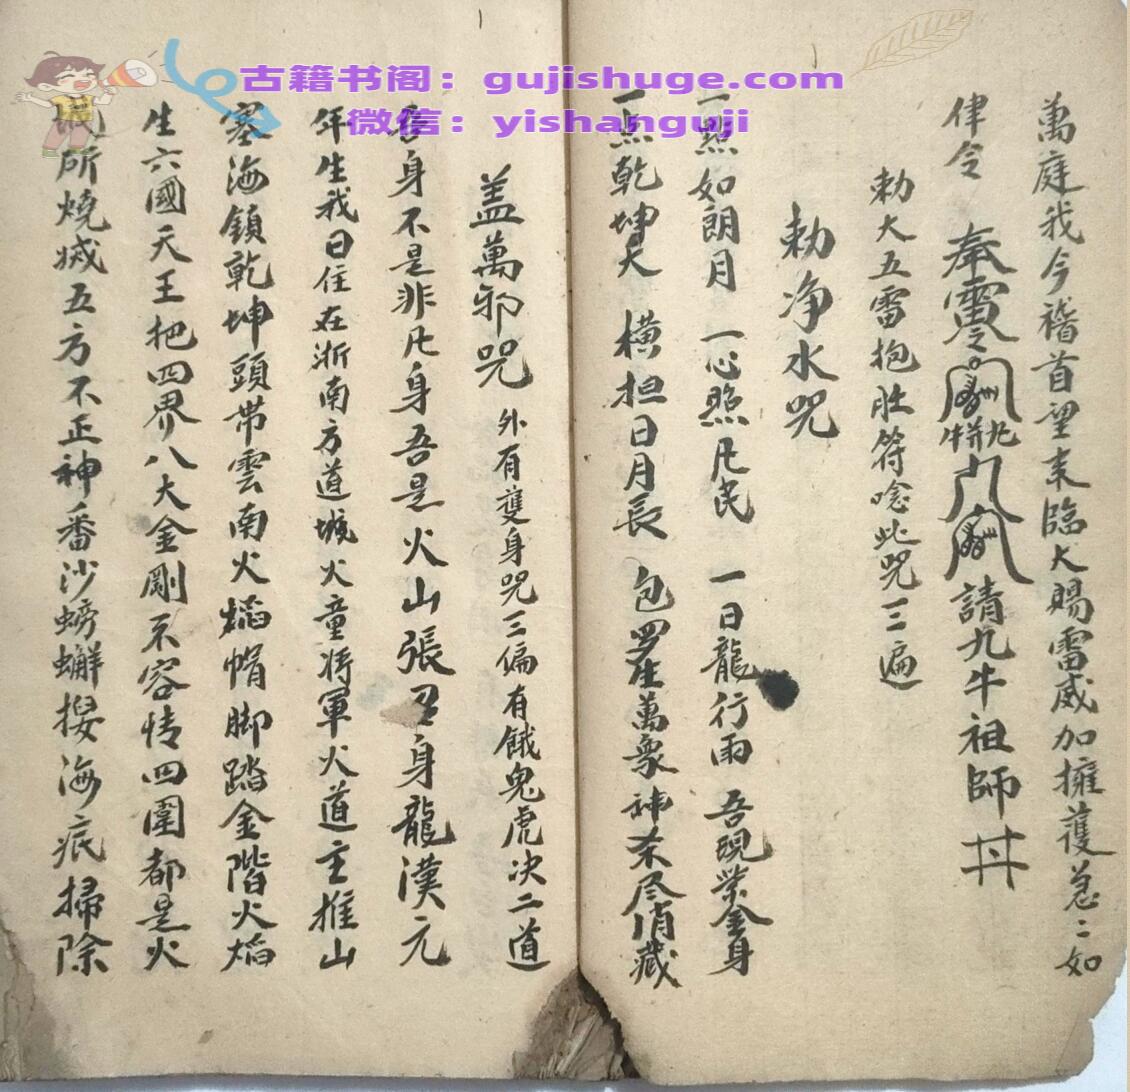 古籍书阁：gujishuge.com
微信：yishanguji
萬庭我今稽首望来臨大賜雷威加擁護急〻如
律令 奉雷令 九牛 請九牛祖師井
勅大五雷抱肚符唸此咒三遍
勅净水咒
一照如朗月 一心照凡民 一日龍行雨 吾現紫金身
一点乾坤大 横担日月長 包罗在萬象 神杀尽消藏
盖萬邪咒 外有護身咒三偏有餓鬼虎决二道
吾身不是非凡身吾是火山張丑身龍漢元
年生我日住在浙南方道城火童将軍火道主推山
塞海鎖乾坤頭带雲南火焰帽脚踏金階火焰
生六國天王把四界八大金剛不容情四圍都是火
所燒滅五方不正神番沙螃蠏捉海痕掃除